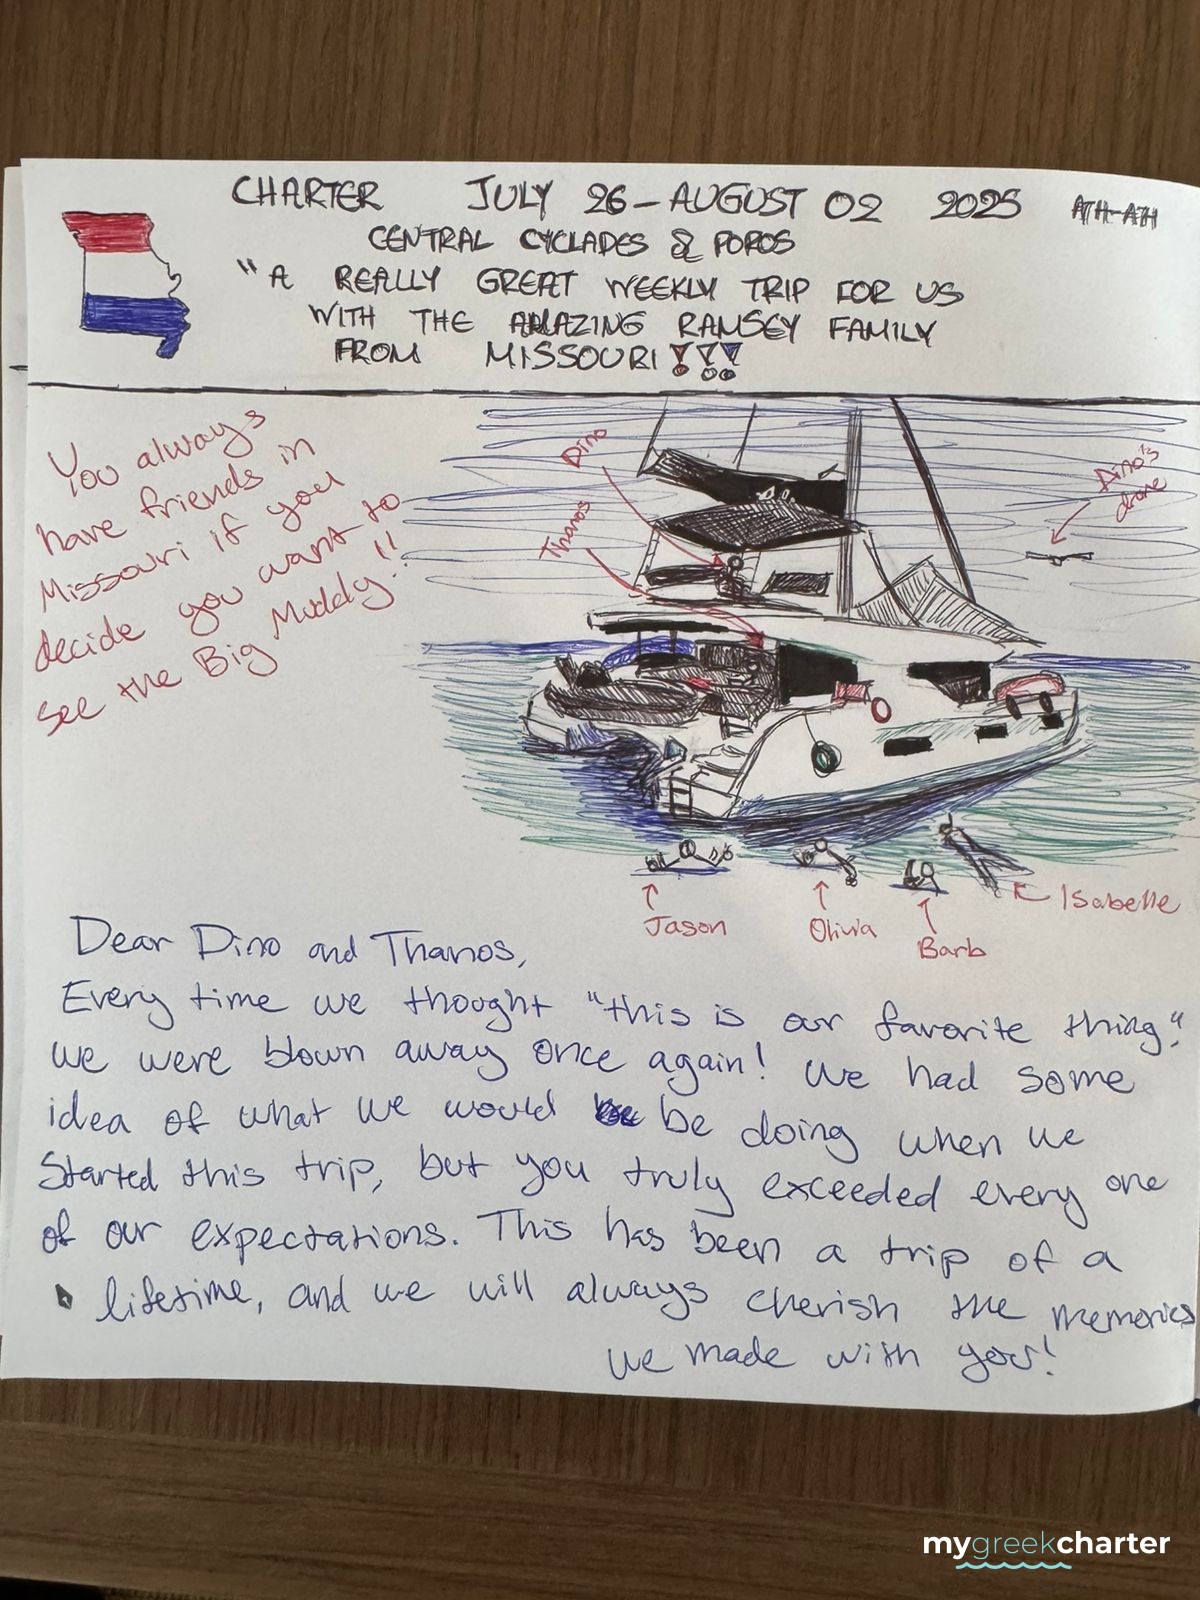 CHARTER JULY 26 - AUGUST 02 2025 ATH-ATH
CENTRAL CYCLADES & POROS
"A REALLY GREAT WEEKLY TRIP FOR US
WITH THE AMAZING RAMSEY FAMILY
FROM MISSOURI!!!
You always
have friends in
Missouri if you
decide you want to
see the Big Muddy!!
Dino
Thanos
Dino's
drone
Jason
Olivia
Barb
Isabelle
Dear Dino and Thanos,
Every time we thought "this is our favorite thing",
we were blown away once again! We had some
idea of what we would be doing when we
started this trip, but you truly exceeded every one
of our expectations. This has been a trip of a
lifetime, and we will always cherish the memories
we made with you!
mygreekcharter